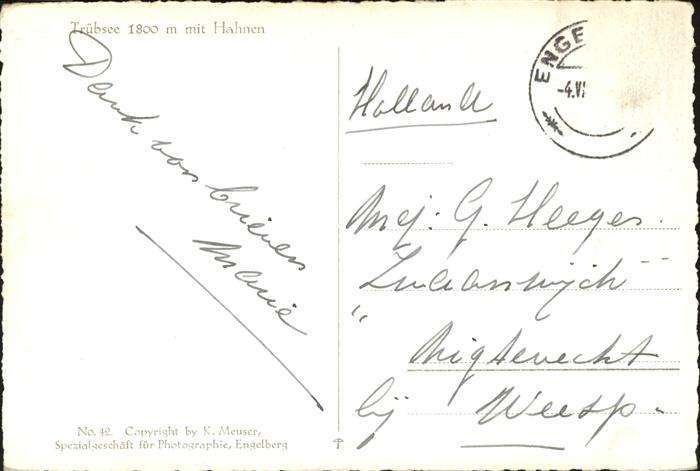 Trübsee 1800 m mit Hahnen
Dank voor brieven
Marie
Holland
ENGE
-4.VI
Mej. G. Heeges.
"
Nigtevecht
bij Weesp.
No. 42. Copyright by K. Meuser,
Spezialgeschäft für Photographie, Engelberg